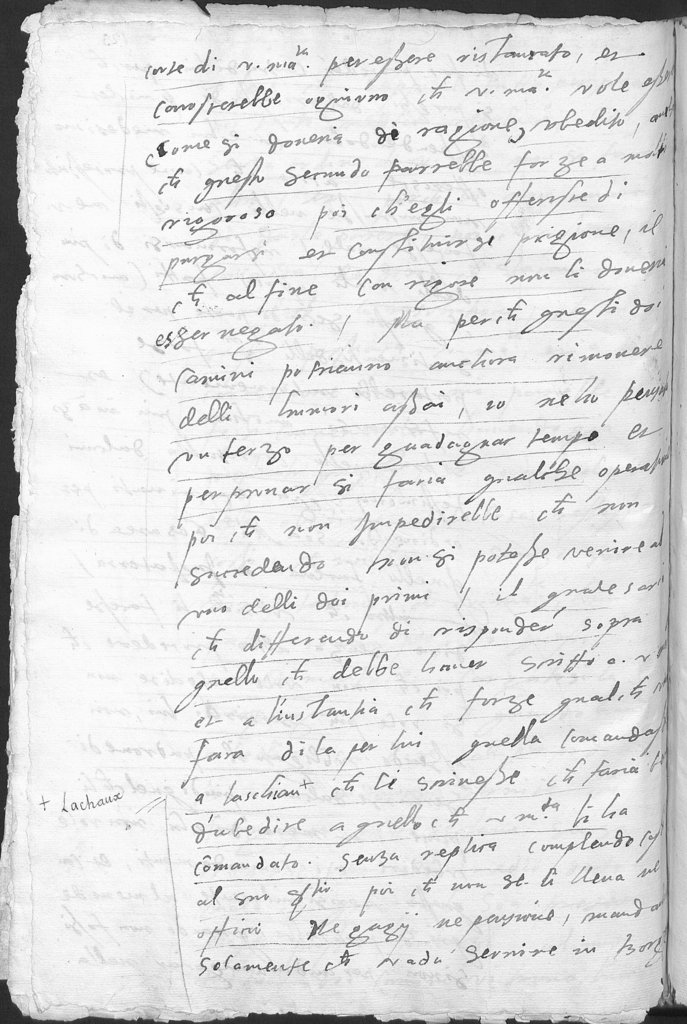 corte di v. ma.ta per essere ristaurato, et
conoscerebbe ogniuno ch v. ma.ta vole
come si doveria de ragione, obedito,
ch questo secundo parrebbe forze a
rigoroso poi ch'egli offerisce di
purgarsi et constituirse prigione, il
ch al fine con rigore non li
esser negato. / Ma perch questi doi
camini potrianno anchora rimovere
delli humori assai, io nelo
un terzo per guadagnar tempo et
per provar si faria qualche
poi ch non impedirebbe ch non
succedendo non si potesse venire al
uno delli doi primi, il quale
ch differendo di risponder sopra
quello ch debbe haver scritto a. v
et a l'instantia ch forze qualch
fara di la per lui quella
a laschiau+ ch li scrivesse ch faria
d'ubedire a quello ch v m.ta li ha
+ Lachaux
comandato. senza replica complendo
al suo poi ch non se li leva ne
officii Ne gagij ne pensione,
solamente ch vada servire in